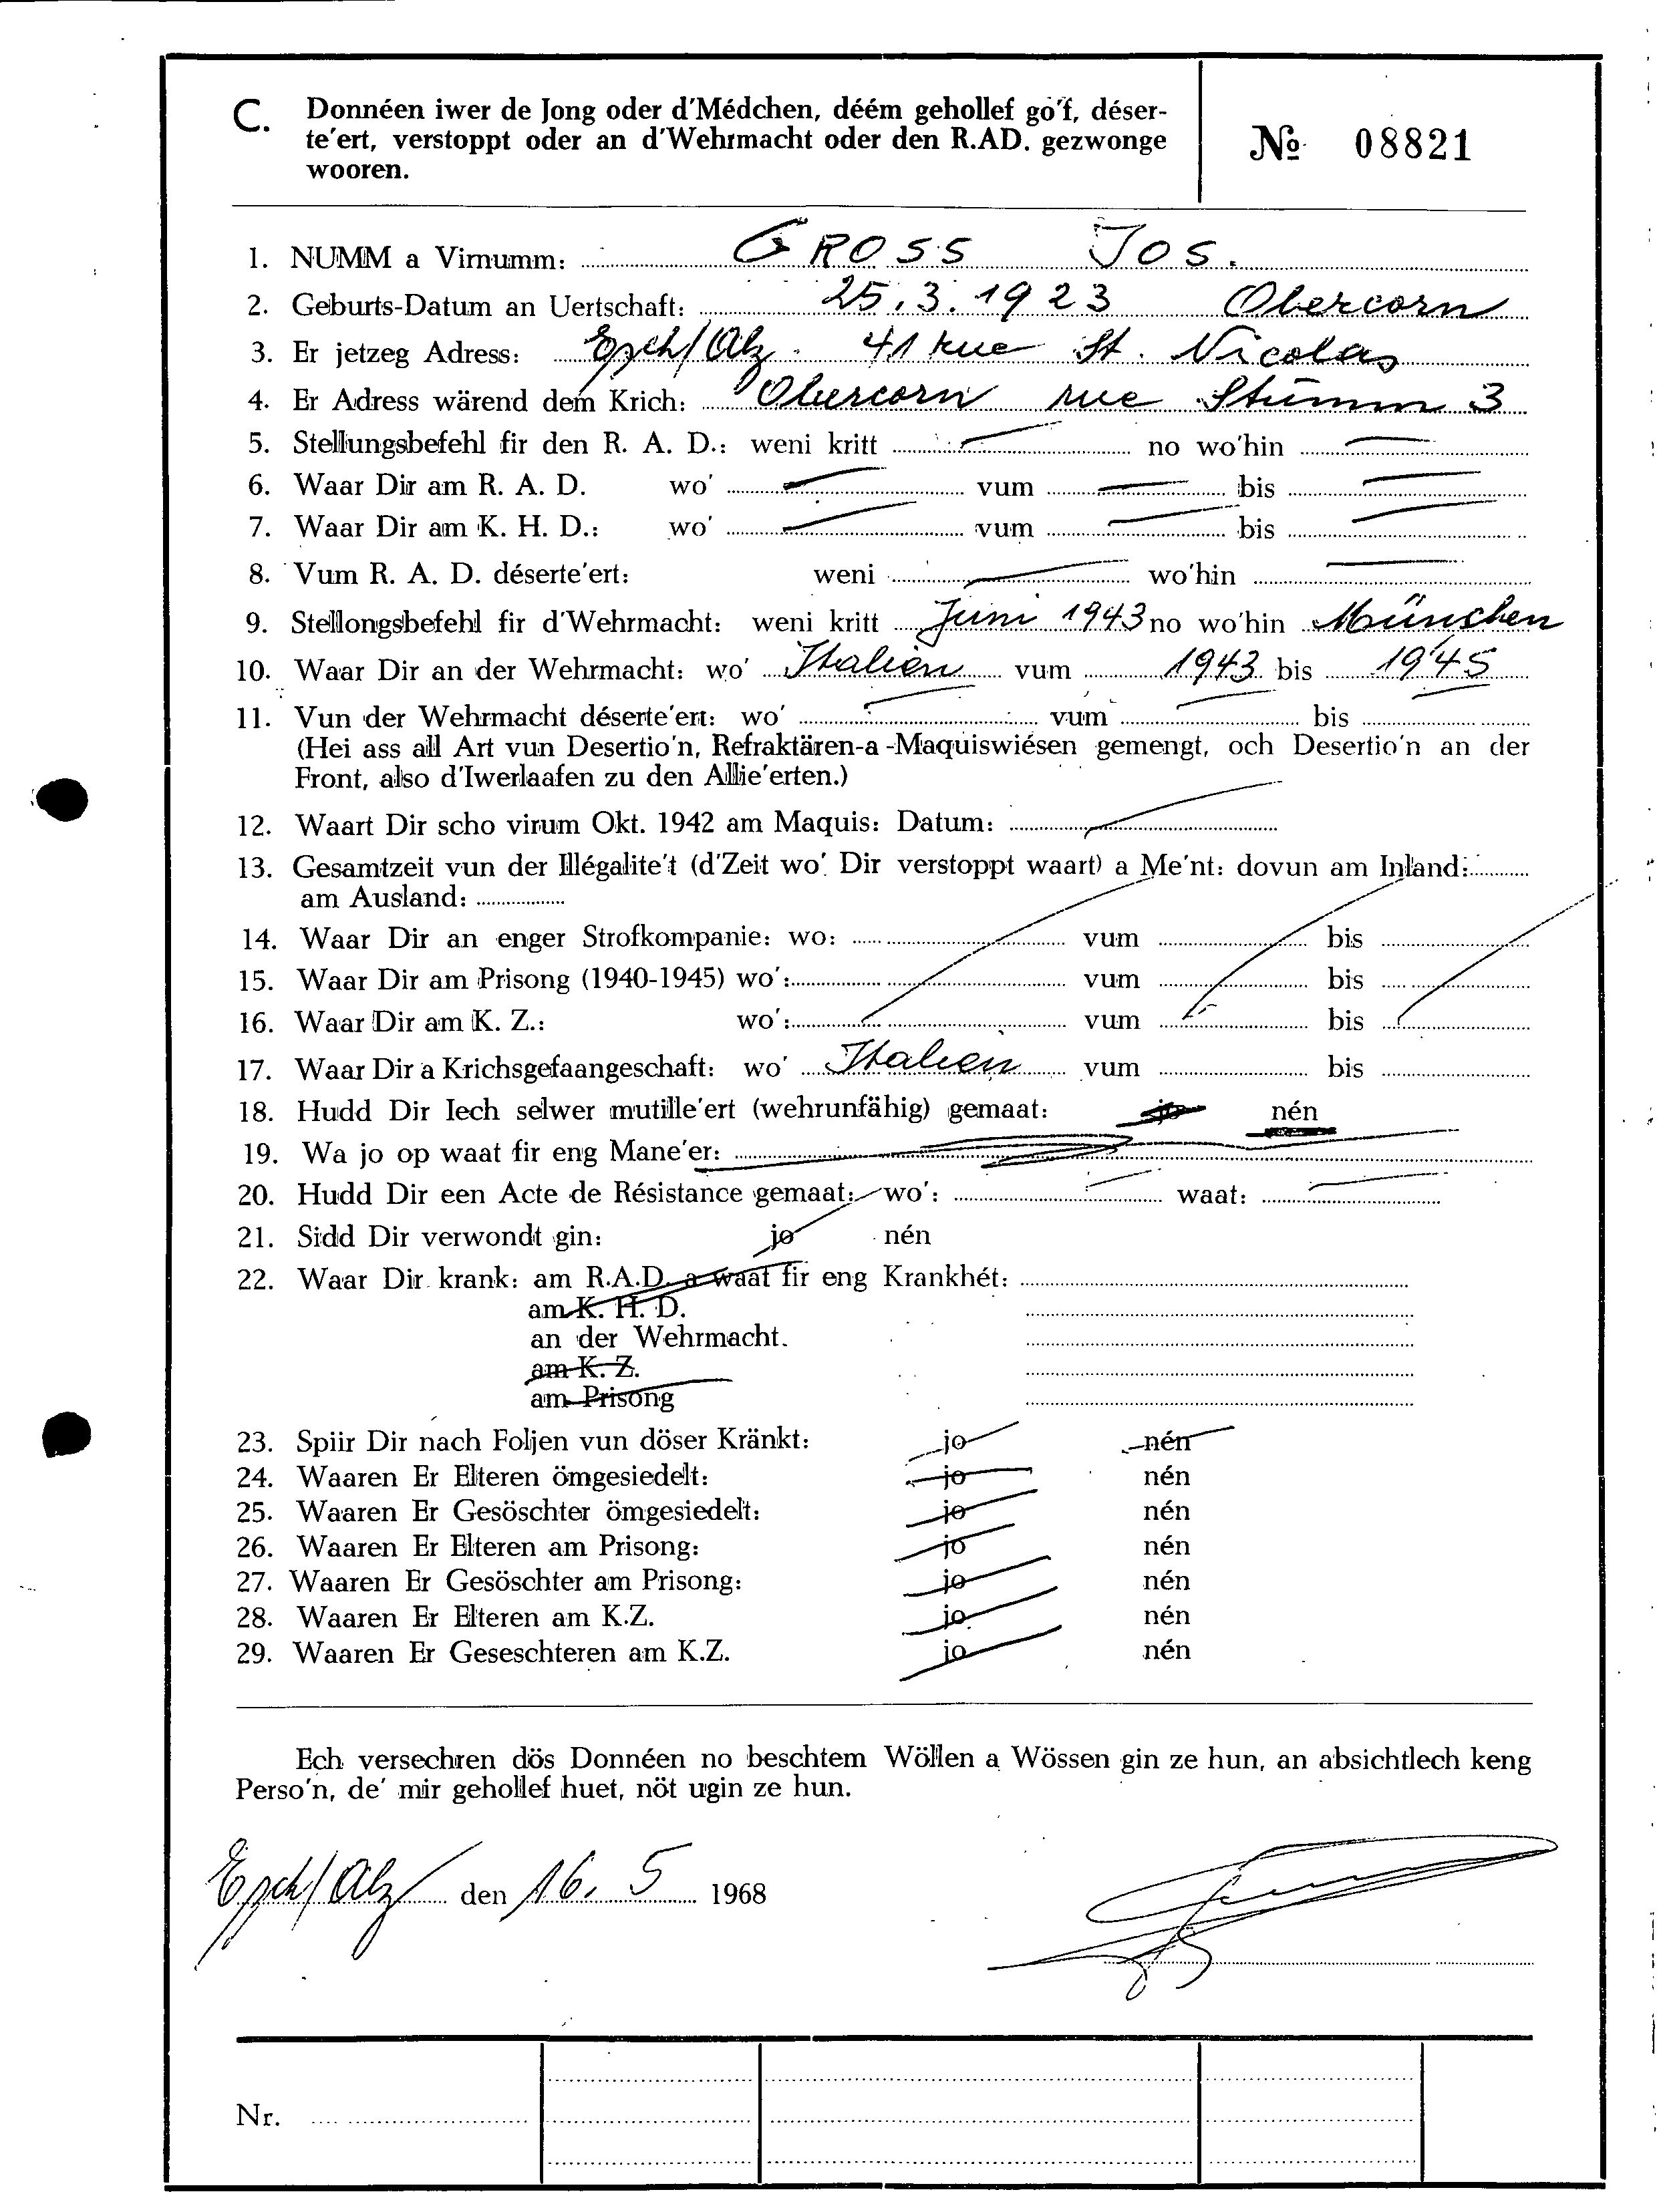 C. Donnéen iwer de Jong oder d'Médchen, déém gehollef go'f, déser-
te'ert, verstoppt oder an d'Wehrmacht oder den R.AD. gezwonge
wooren.
№ 08821
1. NUMM a Virnumm: GROSS JOS.
2. Geburts-Datum an Uertschaft: 25.3.1923 Obercorn
3. Er jetzeg Adress: Esch/Alz. 41 rue St. Nicolas
4. Er Adress wärend dem Krich: Obercorn rue Stumm 3
5. Stellungsbefehl fir den R. A. D.: weni kritt no wo'hin
6. Waar Dir am R. A. D. wo' vum bis
7. Waar Dir am K. H. D.: wo' vum bis
8. Vum R. A. D. déserte'ert: weni wo'hin
9. Stellongsbefehl fir d'Wehrmacht: weni kritt Juni 1943 no wo'hin München
10. Waar Dir an der Wehrmacht: wo' Italien vum 1943 bis 1945
11. Vun der Wehrmacht déserte'ert: wo' vum bis
(Hei ass all Art vun Desertio'n, Refraktären-a-Maquiswiésen gemengt, och Desertio'n an der
Front, also d'Iwerlaafen zu den Allie'erten.)
12. Waart Dir scho virum Okt. 1942 am Maquis: Datum:
13. Gesamtzeit vun der Illégalite't (d'Zeit wo' Dir verstoppt waart) a Me'nt: dovun am Inland:
am Ausland:
14. Waar Dir an enger Strofkompanie: wo: vum bis
15. Waar Dir am Prisong (1940-1945) wo': vum bis
16. Waar Dir am K. Z.: wo': vum bis
17. Waar Dir a Krichsgefaangeschaft: wo' Italien vum bis
18. Hudd Dir Iech selwer mutille'ert (wehrunfähig) gemaat: jo nén
19. Wa jo op waat fir eng Mane'er:
20. Hudd Dir een Acte de Résistance gemaat: wo': waat:
21. Sidd Dir verwondt gin: jo nén
22. Waar Dir krank: am R.A.D. a waat fir eng Krankhét:
am K. H. D.
an der Wehrmacht.
am K. Z.
am Prisong
23. Spiir Dir nach Foljen vun döser Kränkt: jo nén
24. Waaren Er Elteren ömgesiedelt: jo nén
25. Waaren Er Gesöschter ömgesiedelt: jo nén
26. Waaren Er Elteren am Prisong: jo nén
27. Waaren Er Gesöschter am Prisong: jo nén
28. Waaren Er Elteren am K.Z. jo nén
29. Waaren Er Geseschteren am K.Z. jo nén
Ech versechren dös Donnéen no beschtem Wöllen a Wössen gin ze hun, an absichtlech keng
Perso'n, de' mir gehollef huet, nöt ugin ze hun.
Esch/Alz den 16. 5 1968
Nr.